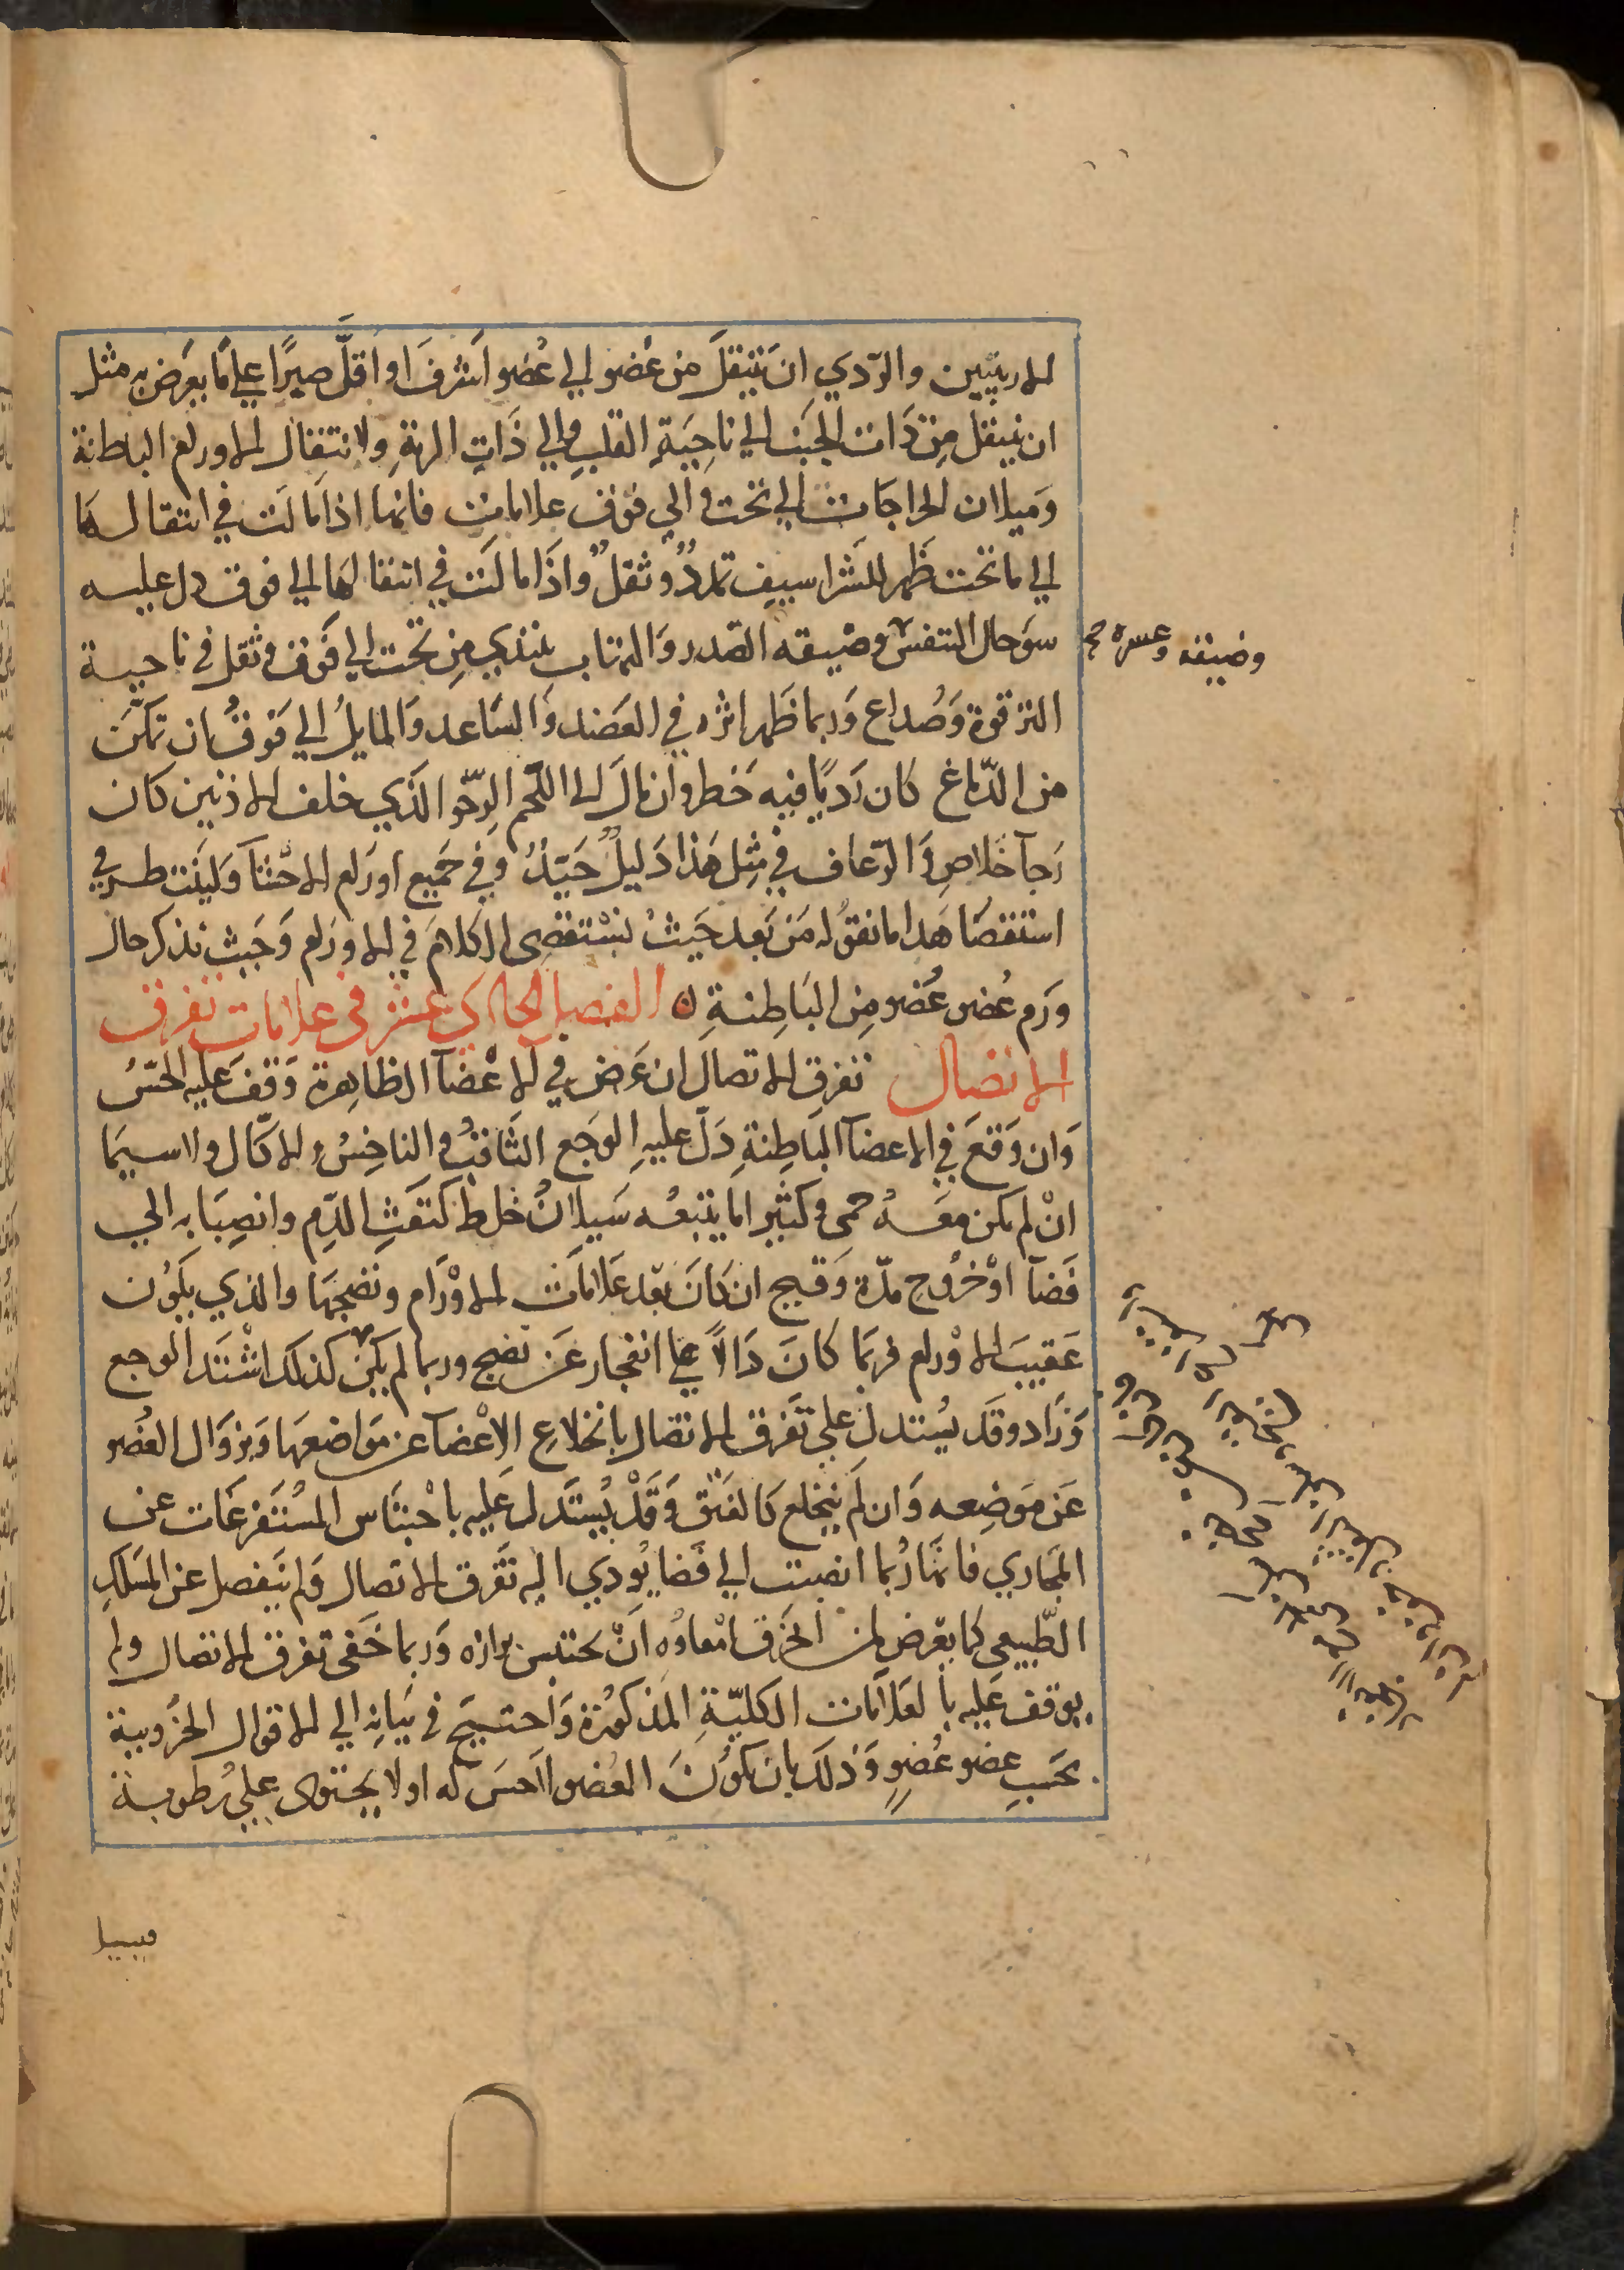 الاربيتين والردي ان تنتقل من عضو الي عضو اشرف او اقل صبرًا علي ما يعرض به مثل
ان ينتقل من ذات الجنب الي ناحية القلب والي ذات الرية ولانتقال الاورام الباطنة
وميلان الخراجات الي تحت والي فوق علامات فانها اذا مالت في انتقالها
الي ما تحت ظهر للشراسيف تمدد وثقل واذا مالت في انتقالها الي فوق دل عليه
سو حال التنفس وضيقه الصدر والتهاب يبتدي من تحت الي فوق وثقل في ناحية
وضيقه وعسره صح
الترقوة وصداع وربما ظهر اثره في العضد والساعد والمايل الي فوق ان تمكن
من الدماغ كان رديًا فيه خطر وان مال الي اللحم الرخو الذي خلف الاذنين كان
رجآ خلاص والرعاف في مثل هذا دليل جيد وفي جميع اورام الاحشآ وليت طر في
استقصا هدا ما نقوله من بعد حيث نستقصى الكلام في الاورام وحيث نذكر حال
ورم عضو عضو من الباطنة ه الفصل الحادي عشر في علامات تفرق
الاتصال تفرق الاتصال ان عرض في الاعضآ الظاهرة وقف عليه الحس
وان وقع في الاعضآ الباطنة دل عليه الوجع الثاقب والناخس والاكال ولاسيما
ان لم يكن معه حمى وكثيرا ما يتبعه سيلان خلط كنفث الدم وانصبابه الي
فضآ او خروج مدة وقيح ان كان بعد علامات الاورام ونضجها والذي يكون
عقيب الاورام فربما كان دالاً علي انفجار عن نضج وربما لم يكن كذلك اشتد الوجع
وزاد وقد يستدل علي تفرق الاتصال بانخلاع الاعضآ عن مواضعها وبزوال العضو
عن موضعه وان لم ينخلع كالفتق وقد يستدل عليه باحتباس المستفرغات عن
المجاري فانها ربما انصبت الي فضا يودي اليه تفرق الاتصال ولم ينفصل عن المسلك
الطبيعي كما يعرض لمن انخرق امعاوه ان يحتبس برازه وربما خفى تفرق الاتصال ولم
يوقف عليه بالعلامات الكلية المذكورة واحتيج في بيانه الي الاقوال الجزويية
بحسب عضو عضو وذلك بان يكون العضو لا حس له او لا يحتوى علي رطوبة
فيسيل